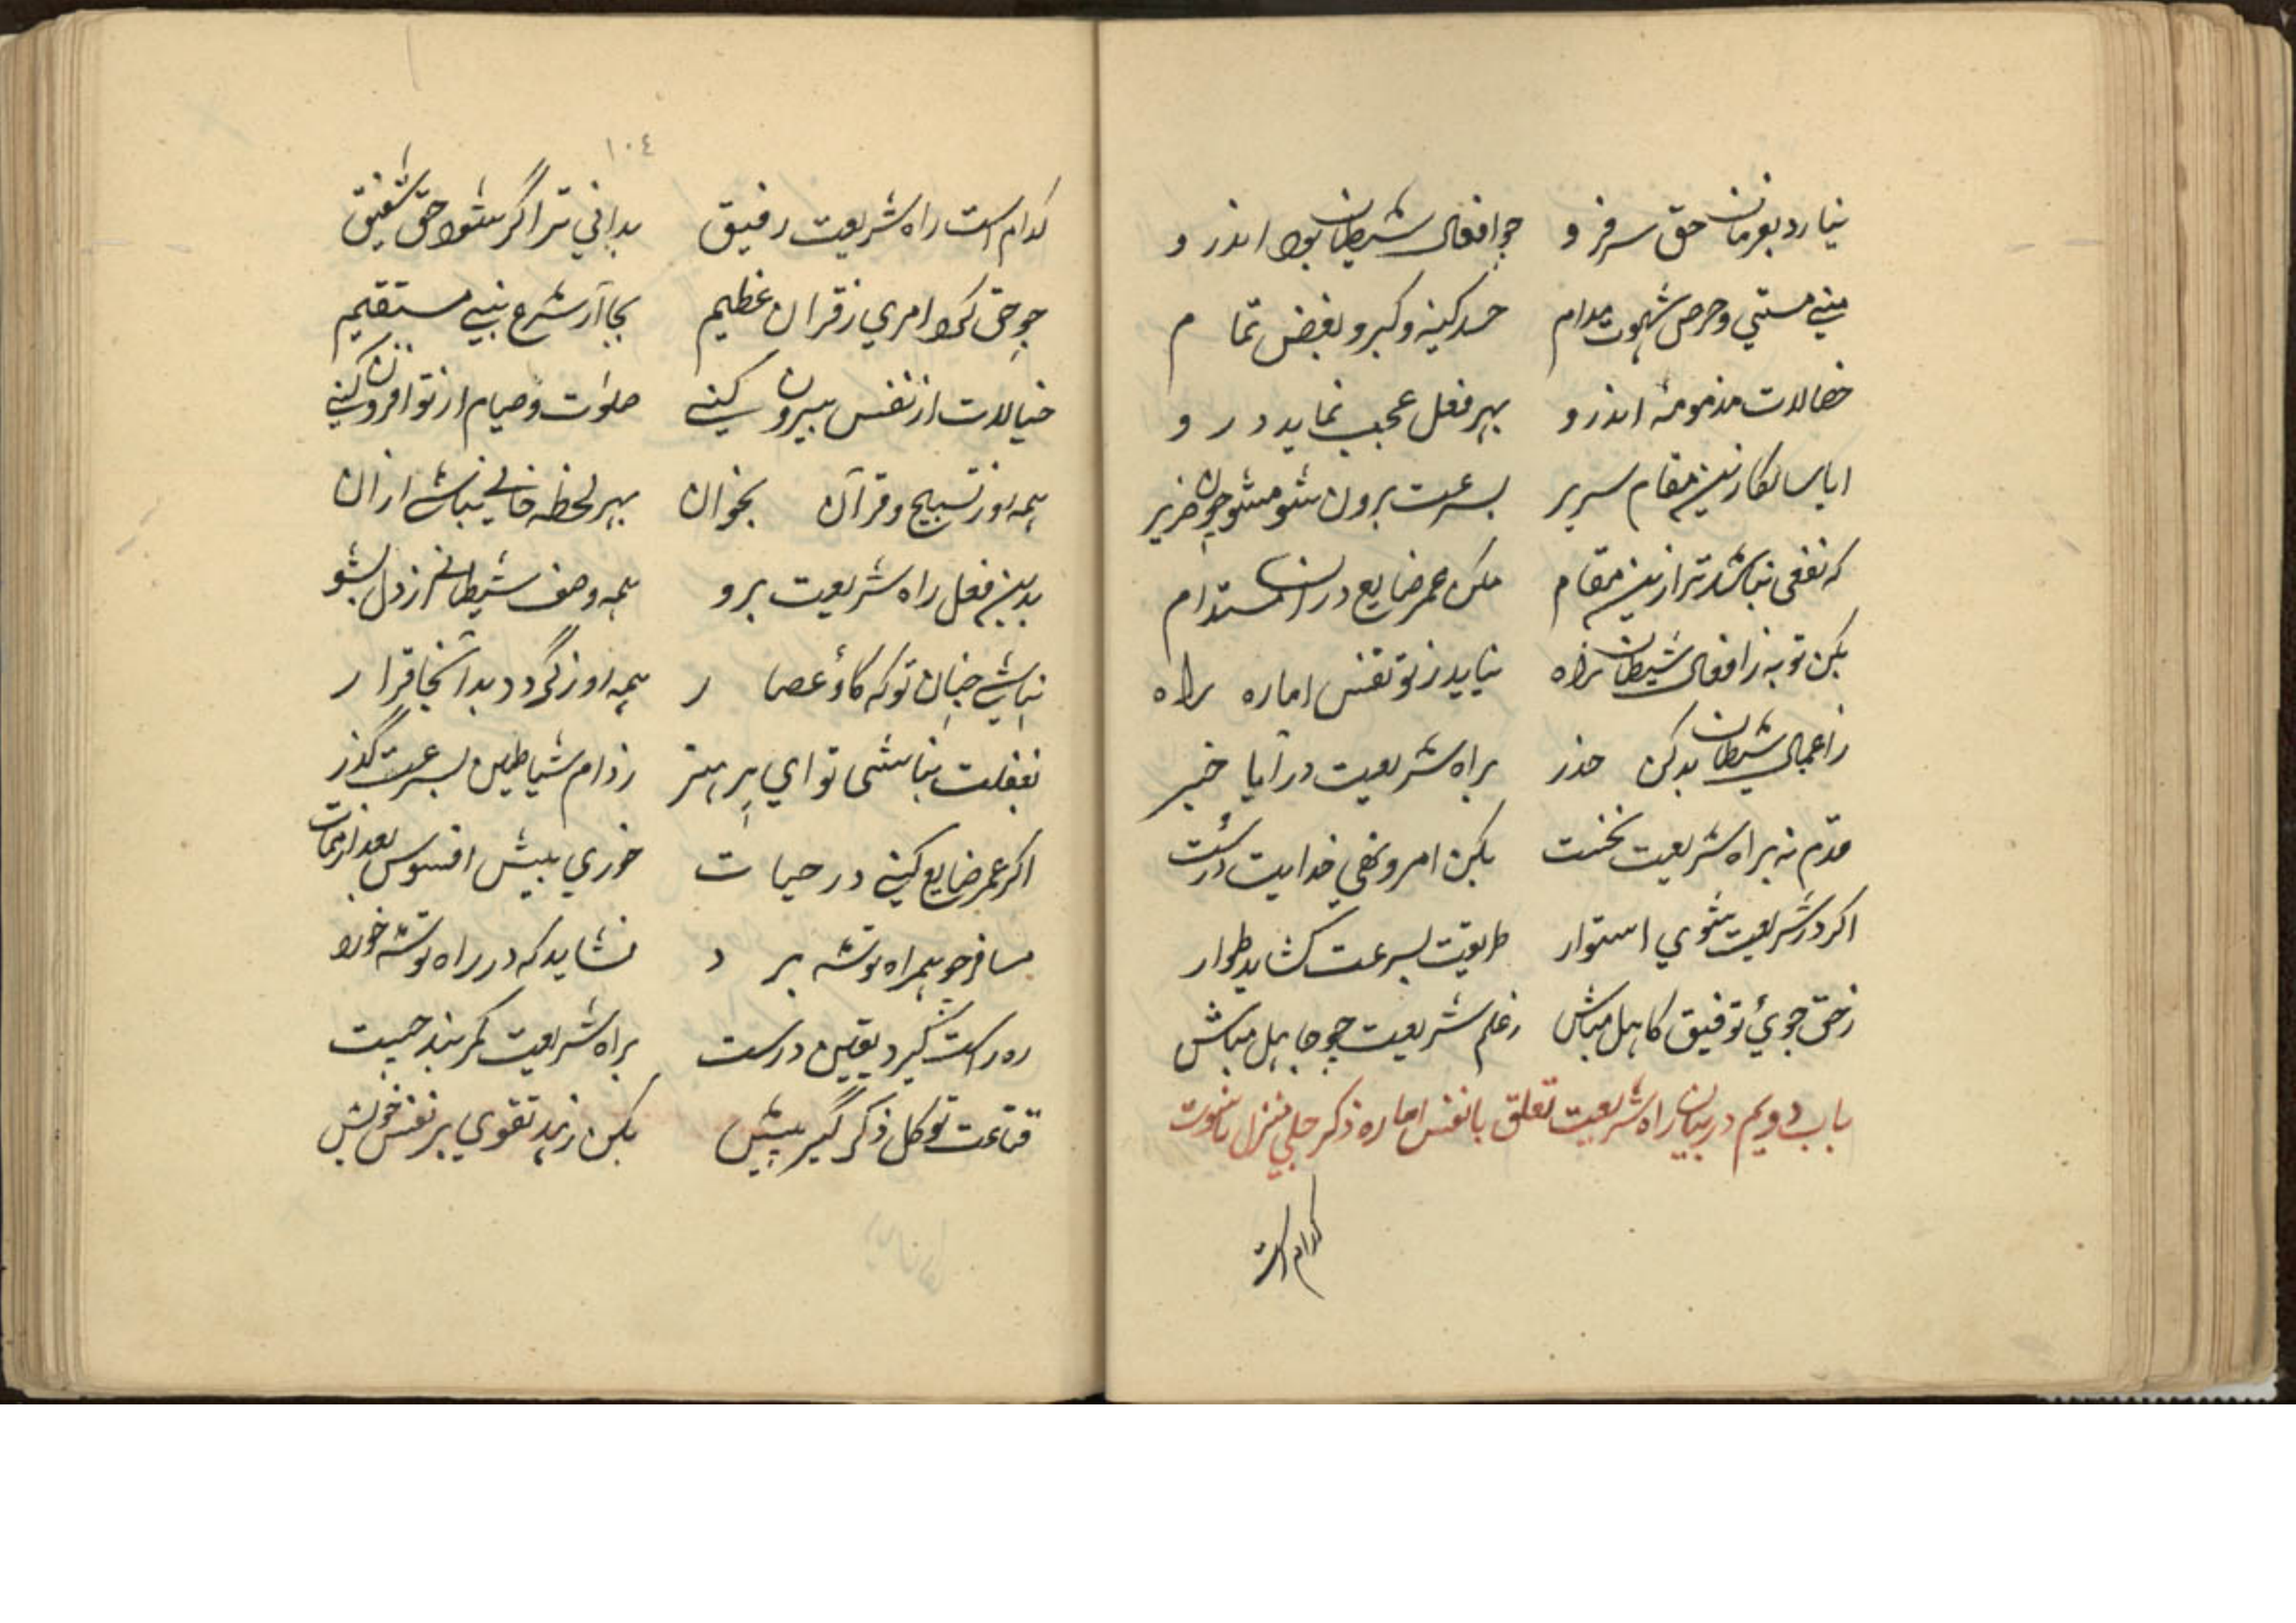 نیارد بفرمان حق سر فرو چو افعال شیطان بود اندرو
منی مستی و حرص شهوت مدام حسد کینه و کبر و بغض تمام
خصالات مذمومه اندرو بهر فعل عجب نماید درو
ایا سالکا زین مقام سریر بسرعت برون شو مشو چون ضریر
که نفعی نباشد ترا زین مقام مکن عمر ضایع در آن مستدام
بکن توبه ز افعال شیطان براه نیاید ز تو نفس اماره براه
ز اعمال شیطان بد کن حذر براه شریعت در آ با خبر
قدم نه براه شریعت نخست بکن امر و نهی خدایت درست
اکر در شریعت شوی استوار طریقت بسرعت کشاید طوار
ز حق جوی توفیق کاهل مباش ز علم شریعت چو جاهل مباش
باب دویم در بیان راه شریعت تعلق با نفس اماره ذکر جلی منزل ناسوت
کدام است
۱۰٤
کدام است راه شریعت رفیق بدانی ترا گر شود حق شفیق
چو حق کرد امری ز قران عظیم بجا آر شرع نبی مستقیم
خیالات از نفس بیرون کنی صلوت و صیام از تو افزون کنی
همه روز تسبیح و قرآن بخوان بهر لحظه خالی نباشی ازان
بدین فعل راه شریعت برو همه وصف شیطانی از دل بشو
نباشی چنان تو که گاو عصار همه روز گردد بدآنجا قرار
بغفلت نباشی تو ای پر هنر ز دام شیاطین بسرعت گذر
اکر عمر ضایع کنی در حیات خوری بیش افسوس بعد از ممات
مسافر چو همراه توشه برد نشاید که در راه توشه خورد
ره راست گیرد یقین درست براه شریعت کمر بند چست
قناعت توکل ذکر گیر پیش بکن زهد تقوی بر نفس خویش